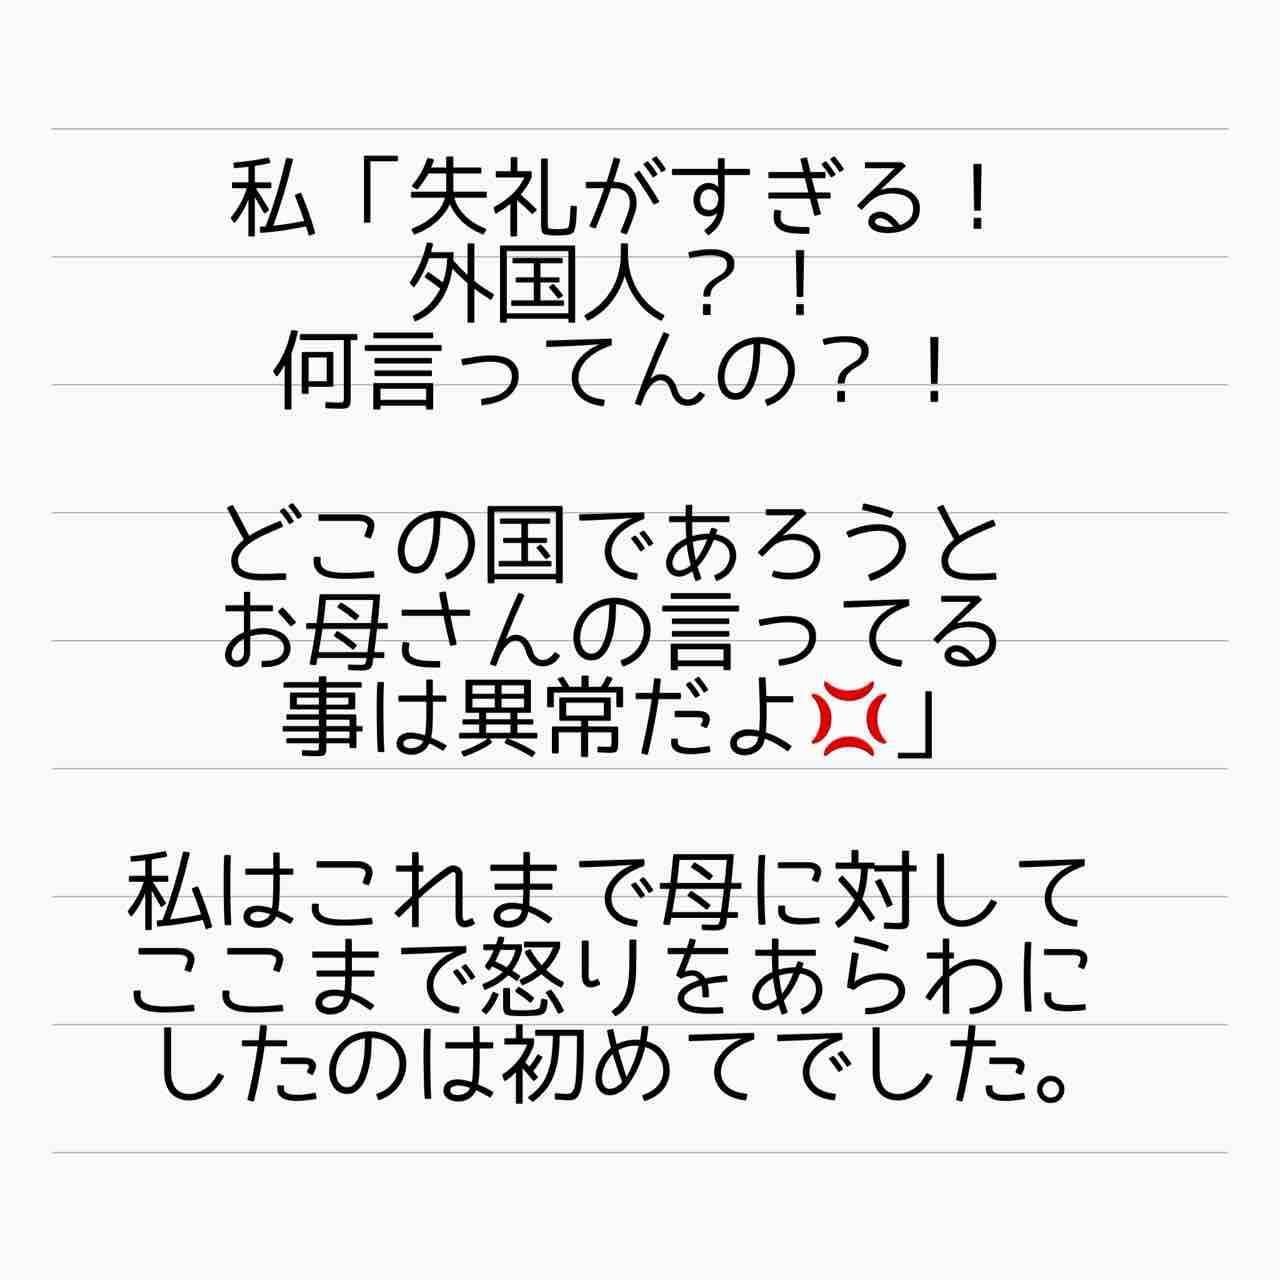 私「失礼がすぎる！
外国人？！
何言ってんの？！
どこの国であろうと
お母さんの言ってる
事は異常だよ💢」
私はこれまで母に対して
ここまで怒りをあらわに
したのは初めてでした。